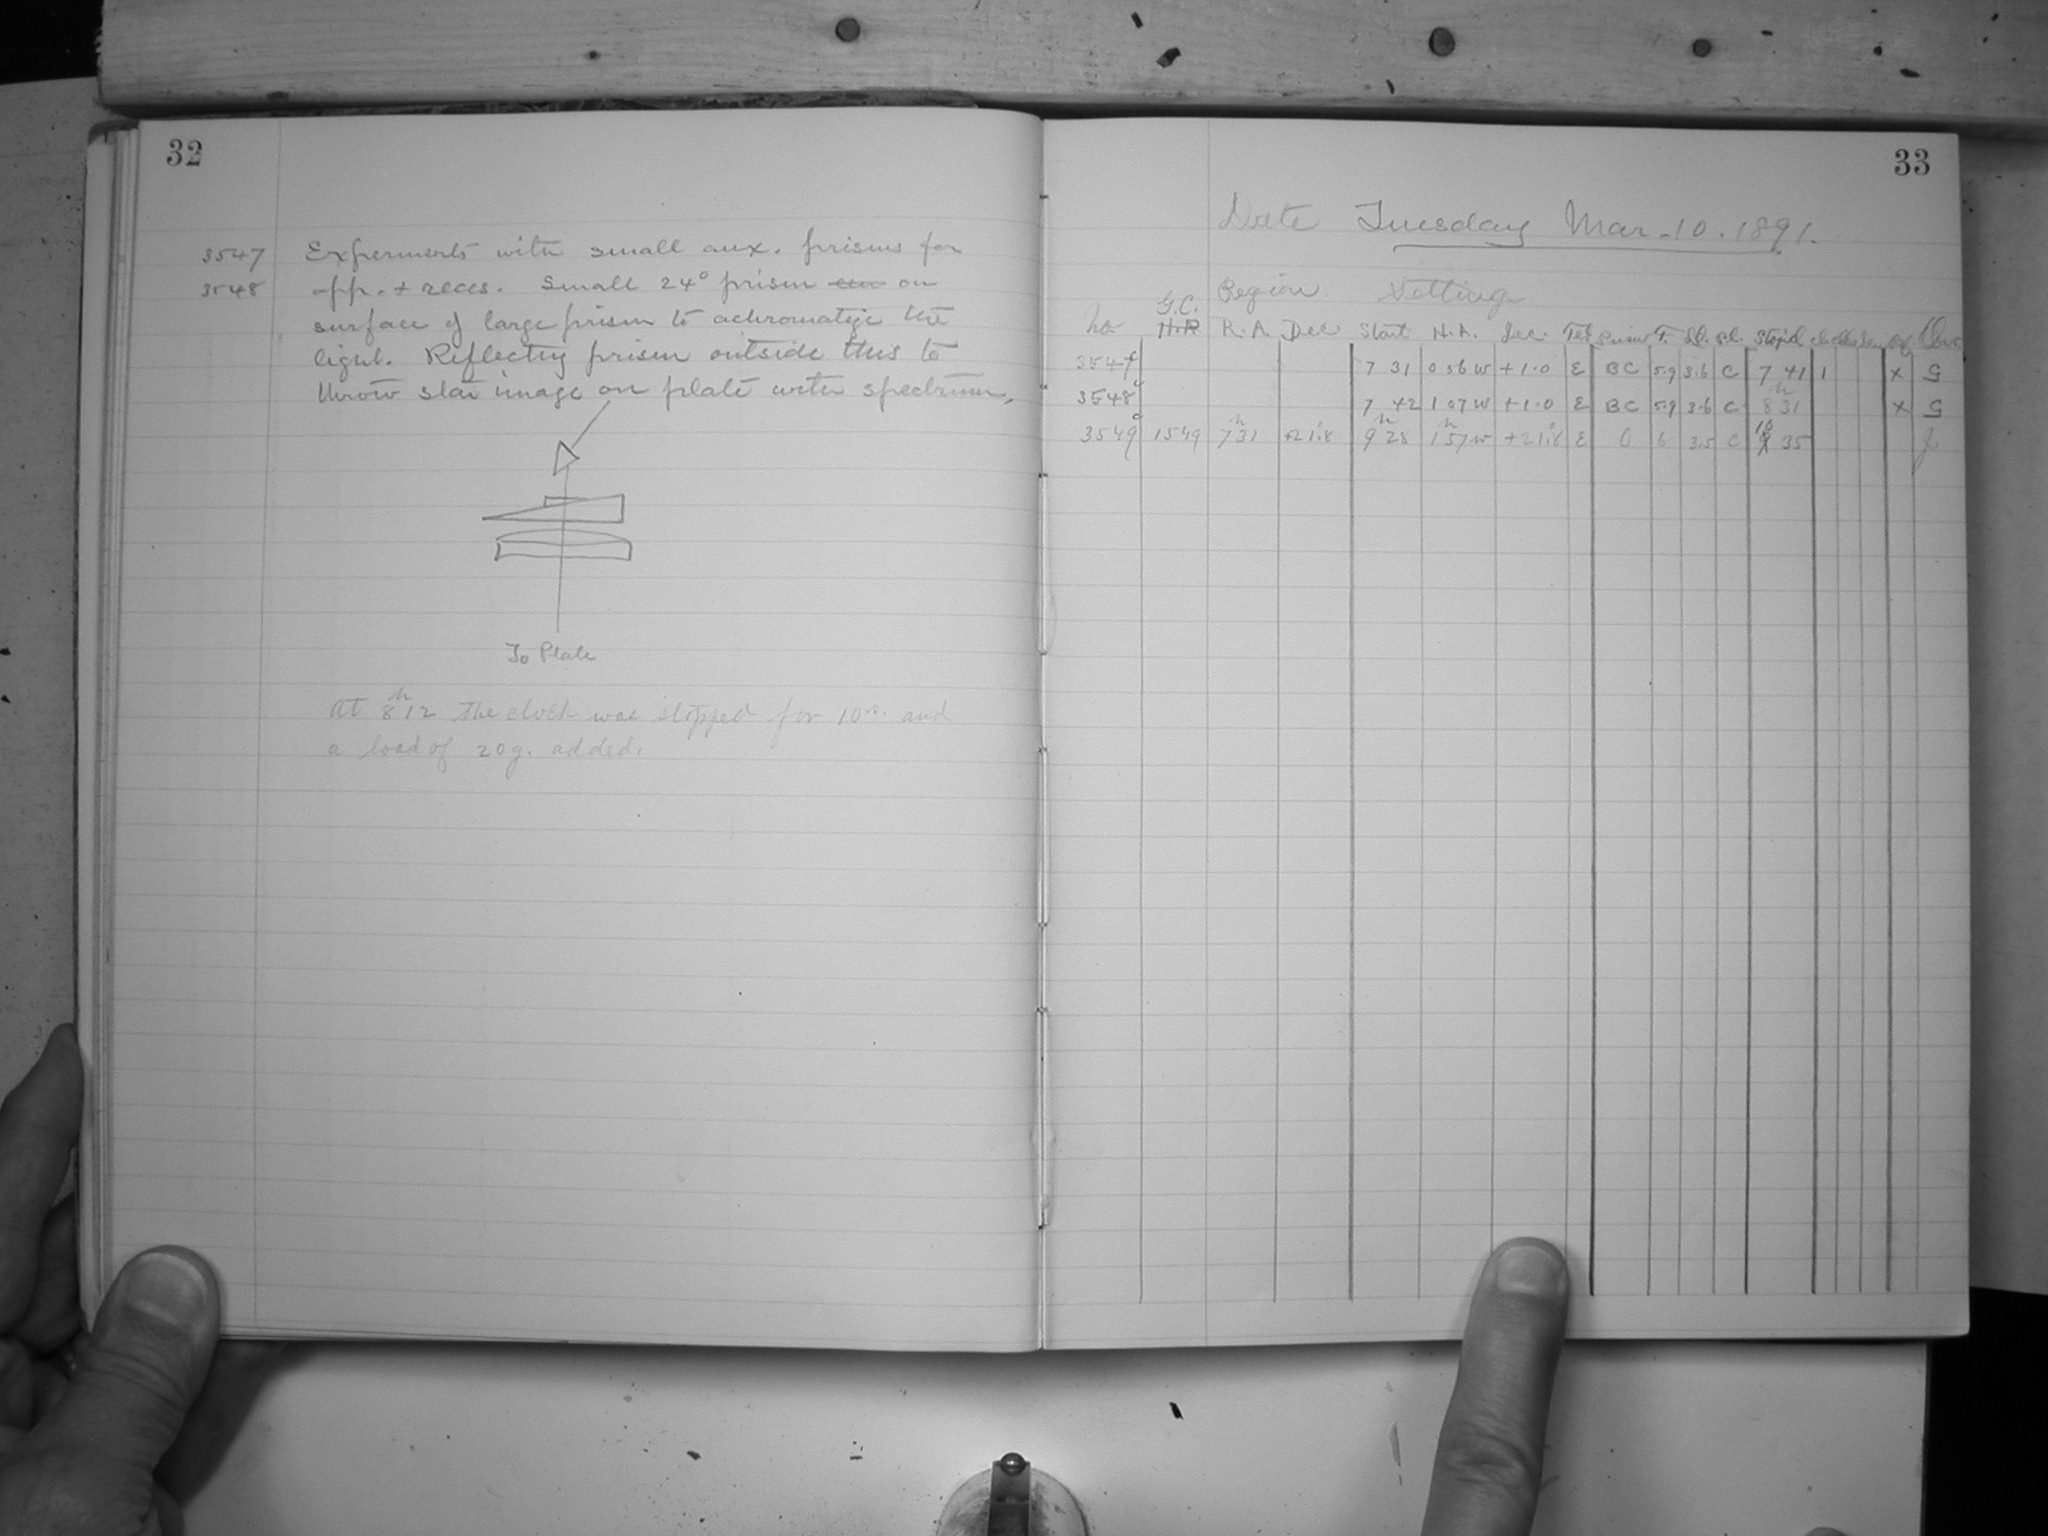 32
3547 Experments with small aux. prisms for
3548 app. + reces. Small 24° prism on
surface of large prism to achromatize the
light. Reflecting prism outside this to
throw star image on plate with spectrum.
To Plate
At 8h 12 the clock was stopped for 10m. and
a load of 20g. added.
33
Date Tuesday Mar. 10. 1891.
Region Setting
No. G.C. H.P. R.A. Dec. Start H.A. Dec. Tel Prism F. Sl. Pl. Stop'd Obs.
3547 7 31 0 56 W +1.0 E BC 5.9 3.6 C 7 41 1 x G
3548 7 42 1 07 W +1.0 E BC 5.9 3.6 C 8h 31 x G
3549 1549 7h 31 +21.8 9h 28 1h 57 W +21.8 E 0 6 3.5 C 10 35